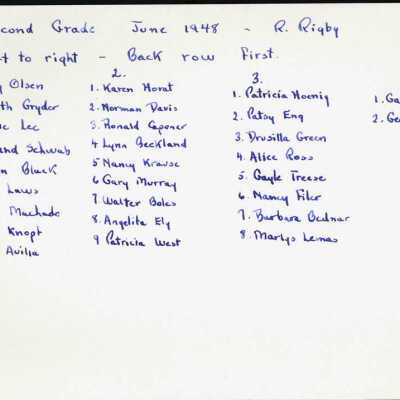 cond Grade June 1948 - R. Rigby
t to right - Back row First.
y Olsen
th Gryder
e Lee
and Schwab
n Black
Laws
Machado
Knopt
Avilla
2.
1. Karen Horat
2. Norman Davis
3. Ronald Caponer
4 Lynn Beckland
5 Nancy Krause
6 Gary Murray
7 Walter Boles
8. Angelita Ely
9 Patricia West
3.
1. Patricia Hoenig
2. Patsy Eng
3. Drusilla Green
4. Alice Ross
5. Gayle Treese
6. Nancy Filer
7. Barbara Bednar
8. Marlys Lemas
1. Ga
2. Ge